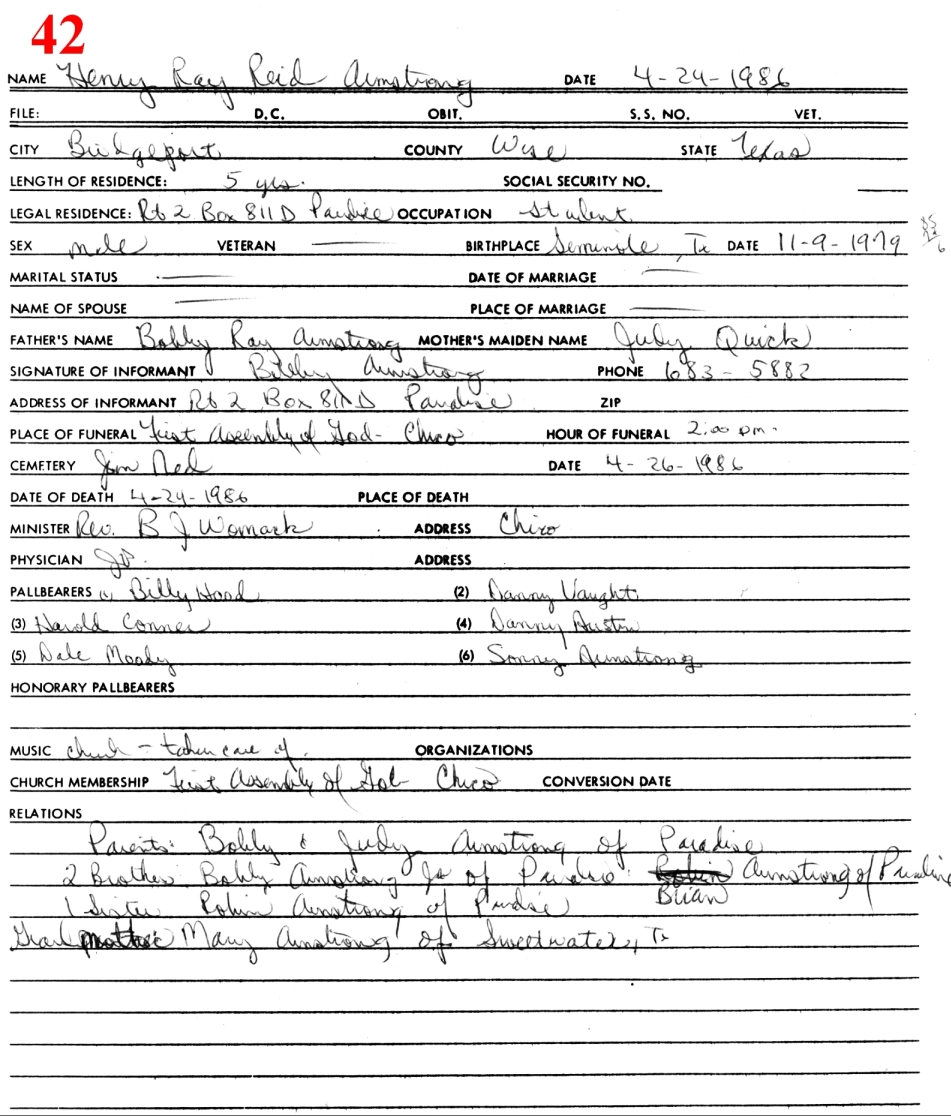 42
NAME Henry Ray Reid Armstrong DATE 4-24-1986
FILE: D.C. OBIT. S.S. NO. VET.
CITY Bridgeport COUNTY Wise STATE Texas
LENGTH OF RESIDENCE: 5 yrs. SOCIAL SECURITY NO.
LEGAL RESIDENCE: Rt 2 Box 811 D Paradise OCCUPATION Student
SEX male VETERAN BIRTHPLACE Seminole, Tx DATE 11-9-1979
MARITAL STATUS DATE OF MARRIAGE
NAME OF SPOUSE PLACE OF MARRIAGE
FATHER'S NAME Bobby Ray Armstrong MOTHER'S MAIDEN NAME Judy Quick
SIGNATURE OF INFORMANT Armstrong PHONE 683-5882
ADDRESS OF INFORMANT Rt 2 Box 811 D Paradise ZIP
PLACE OF FUNERAL First Assembly of God - Chico HOUR OF FUNERAL 2:00 pm.
CEMETERY Jim Ned DATE 4-26-1986
DATE OF DEATH 4-24-1986 PLACE OF DEATH
MINISTER Rev. B J Womack ADDRESS Chico
PHYSICIAN JP. ADDRESS
PALLBEARERS (1) Billy Hood (2) Danny Vaught
(3) Harold Conner (4) Danny Austin
(5) Dale Moody (6) Sonny Armstrong
HONORARY PALLBEARERS
MUSIC church - taken care of. ORGANIZATIONS
CHURCH MEMBERSHIP First Assembly of God - Chico CONVERSION DATE
RELATIONS
Parents: Bobby & Judy Armstrong of Paradise
2 Brother Bobby Armstrong Jr of Paradise Robin Armstrong of Paradise
Brian
1 Sister Robin Armstrong of Paradise
Grandmother Mary Armstrong of Sweetwater, Tx